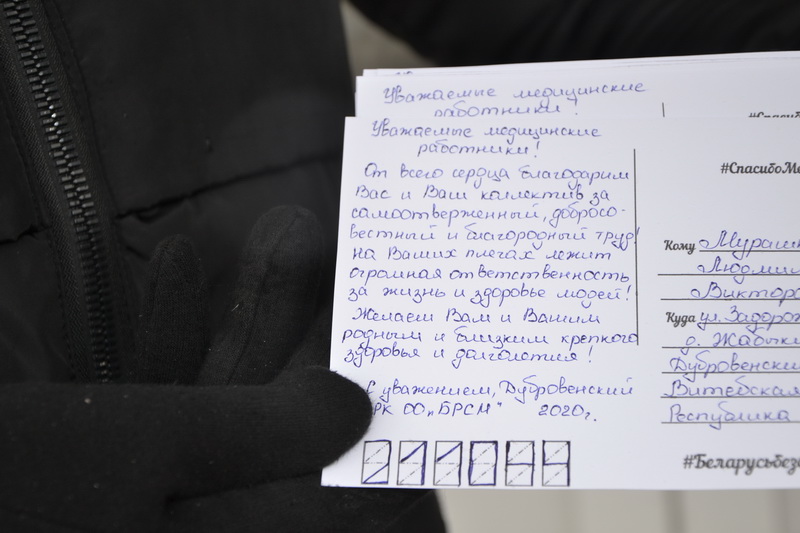 Уважаемые медицинские
работники!
Уважаемые медицинские
работники!
От всего сердца благодарим
Вас и Ваш коллектив за
самоотверженный, добросо-
вестный и благородный труд!
На Ваших плечах лежит
огромная ответственность
за жизнь и здоровье людей!
Желаем Вам и Вашим
родным и близким крепкого
здоровья и долголетия!
С уважением, Дубровенский
РК ОО „БРСМ" 2020г.
211044
#СпасибоМе
Кому Мурашк
Людмил
Викторо
Куда ул. Задорож
д. Жабыки
Дубровенский
Витебская
Республика
#Беларусьбез